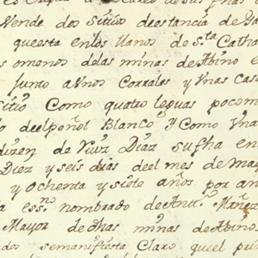 Vende dos Sitios de estancia de
questa en los llanos de Sta Catha
os omenos de las minas de Abino e
Junto a Vnos Corrales y Vnas Cas
Sitio Como quatro leguas pocom
o de el peñol Blanco y Como Vna
dizen de Ruiz Diaz su fha en
Diez y seis dias de el mes de ma
y ochenta y siete años por an
a essno nombrado de Antt. Nuñez
Mayor de dhas minas de Abino
dos se manifiesta Claro quel pri